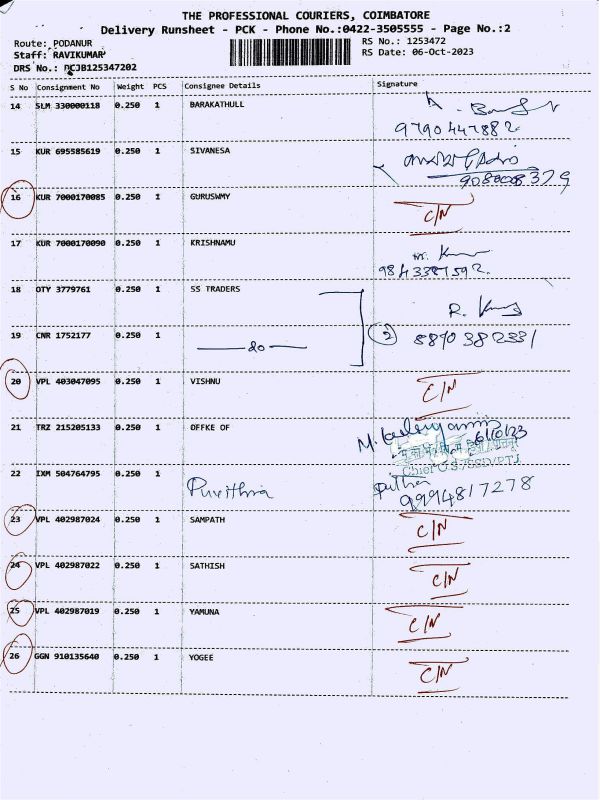 THE PROFESSIONAL COURIERS, COIMBATORE
Delivery Runsheet - PCK - Phone No.:0422-3505555 - Page No.:2
Route: PODANUR
RS No.: 1253472
Staff: RAVIKUMAR
RS Date: 06-Oct-2023
DRS No.: PCJB125347202
S No Consignment No Weight PCS Consignee Details Signature
14 SLM 330000118 0.250 1 BARAKATHULL
9790447882
15 KUR 695585619 0.250 1 SIVANESA
9080008379
16 KUR 7000170085 0.250 1 GURUSWMY C/N
17 KUR 7000170090 0.250 1 KRISHNAMU
9843381592
18 OTY 3779761 0.250 1 SS TRADERS
19 CNR 1752177 0.250 1 do 2 5890382331
20 VPL 403047095 0.250 1 VISHNU C/N
21 TRZ 215205133 0.250 1 OFFKE OF
6/10/23
Chief O.S/SSD/PTJ
22 IXM 504764795 0.250 1 Puvithra
9994817278
23 VPL 402987024 0.250 1 SAMPATH C/N
24 VPL 402987022 0.250 1 SATHISH C/N
25 VPL 402987019 0.250 1 YAMUNA C/N
26 GGN 910135640 0.250 1 YOGEE C/N